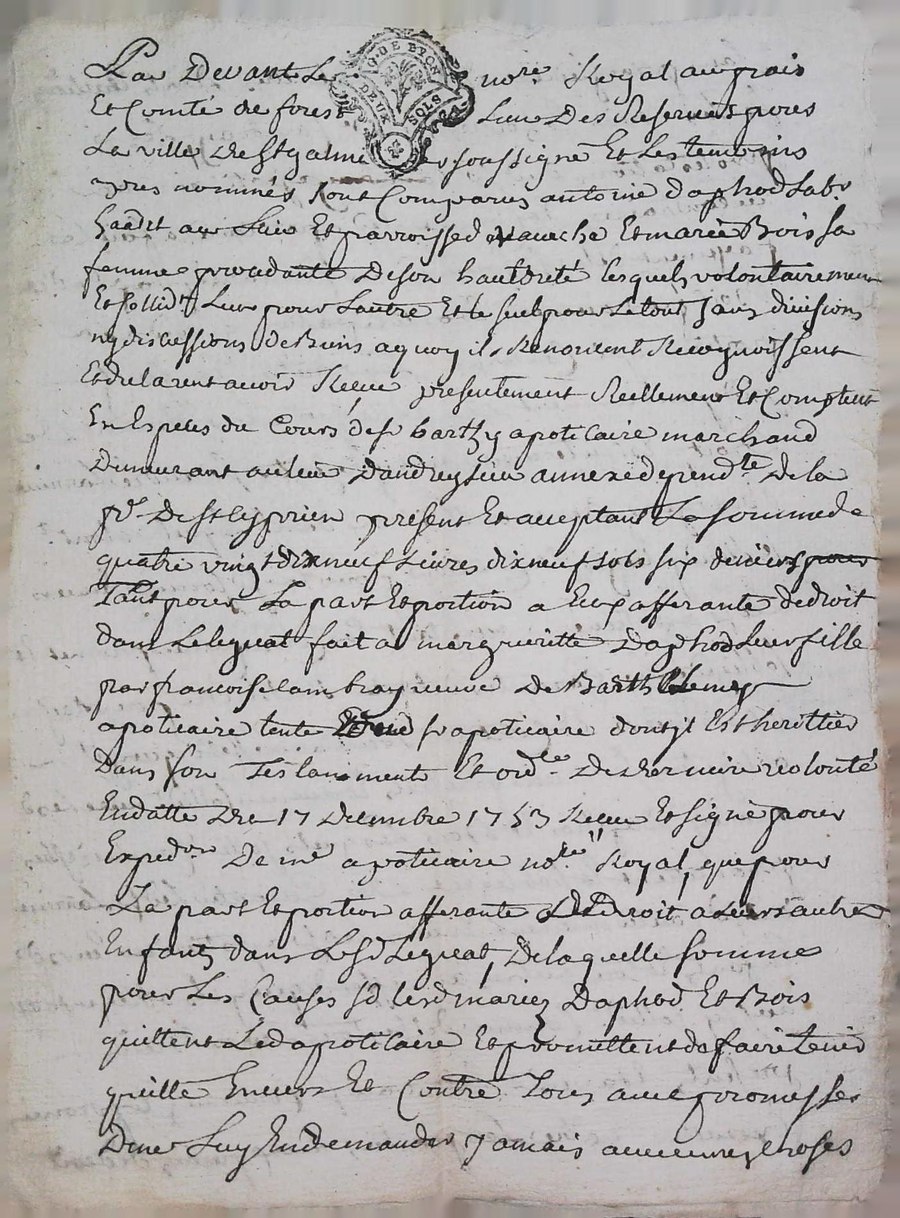 Par Devant Le nore Royal au pais
Et Comté de forest Lun Des Reservés pour
La ville de St galmier soussigné Et Les temoins
apres nommés sont Comparus antoine daphod Labr
hantdt au Lieu Et parroisse d aveche Et marie Bois sa
femme procedante De son hauthorité lesquels volontairement
Et sollidt Lun pour Lautre Et le seul pour Le tout sans divisions
ny discussions De Biens a quoy ils Renoncent Recognoissent
Et declarent avoir Receu presentement Reellement Et Comptent
En Especes du Cours de sr barthy apoticaire marchand
Demeurant au lieu Dandreysieu annexe dependte De la
pe De St Cyprien present Et acceptant La somme de
quatre vingt dix neuf Livres dix neuf sols six deniers pour
Tant pour La part Et portion a Eux afferante de droit
dans Le legueat fait a margueritte Daphod Leur fille
par francoise lambray veuve De Barthelemy
apoticaire tente sr apoticaire dont il Est herittier
Dans son Testamment Et ordce De derniere volonté
En datte du 17 Decembre 1753 Receu Et signé pour
Expedon De me apoticaire nore Royal, que pour
La part Et portion afferante De Droit a Leurs autres
Enfants dans Led Legueat, De laquelle somme
pour Les Causes sd lesd mariez Daphod Et Bois
quittent Led apoticaire Et promettent de faire tenir
quitte Envers Et Contre Tous avec promesses
De ne Luy En demander Jamais aucunes choses
Q. DE BYON
DEUX SOLS